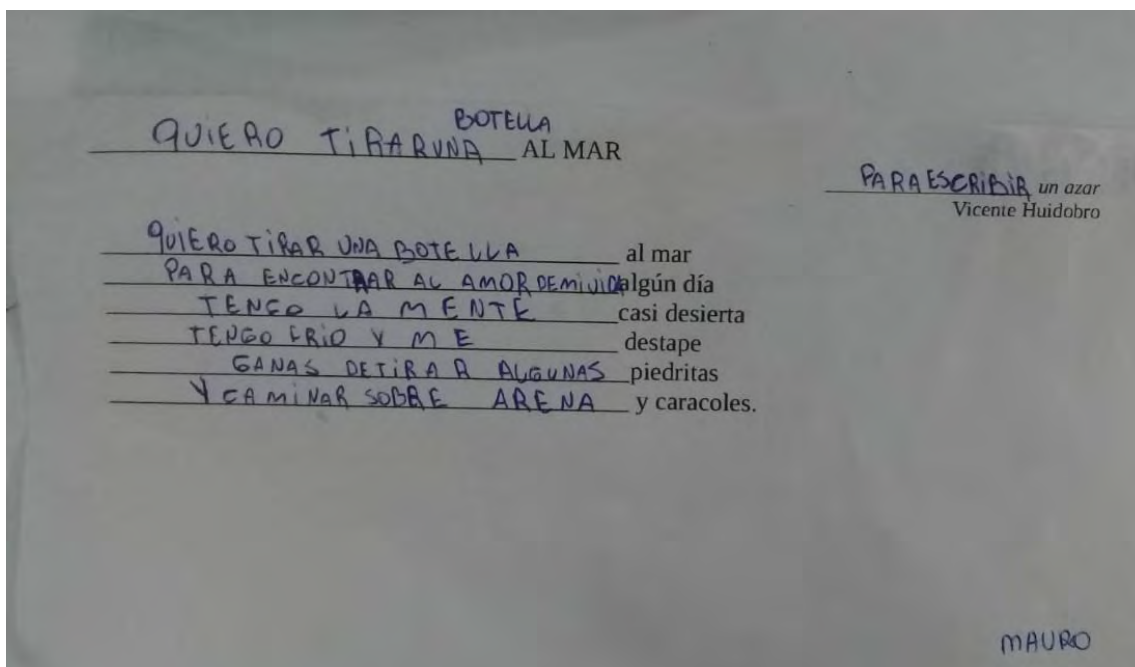 QUIERO TIRAR UNA BOTELLA AL MAR
PARA ESCRIBIR un azar
Vicente Huidobro
QUIERO TIRAR UNA BOTELLA al mar
PARA ENCONTRAR AL AMOR DE MI VIDA algún día
TENGO LA MENTE casi desierta
TENGO FRIO Y ME destape
GANAS DE TIRAR ALGUNAS piedritas
Y CAMINAR SOBRE ARENA y caracoles.
MAURO